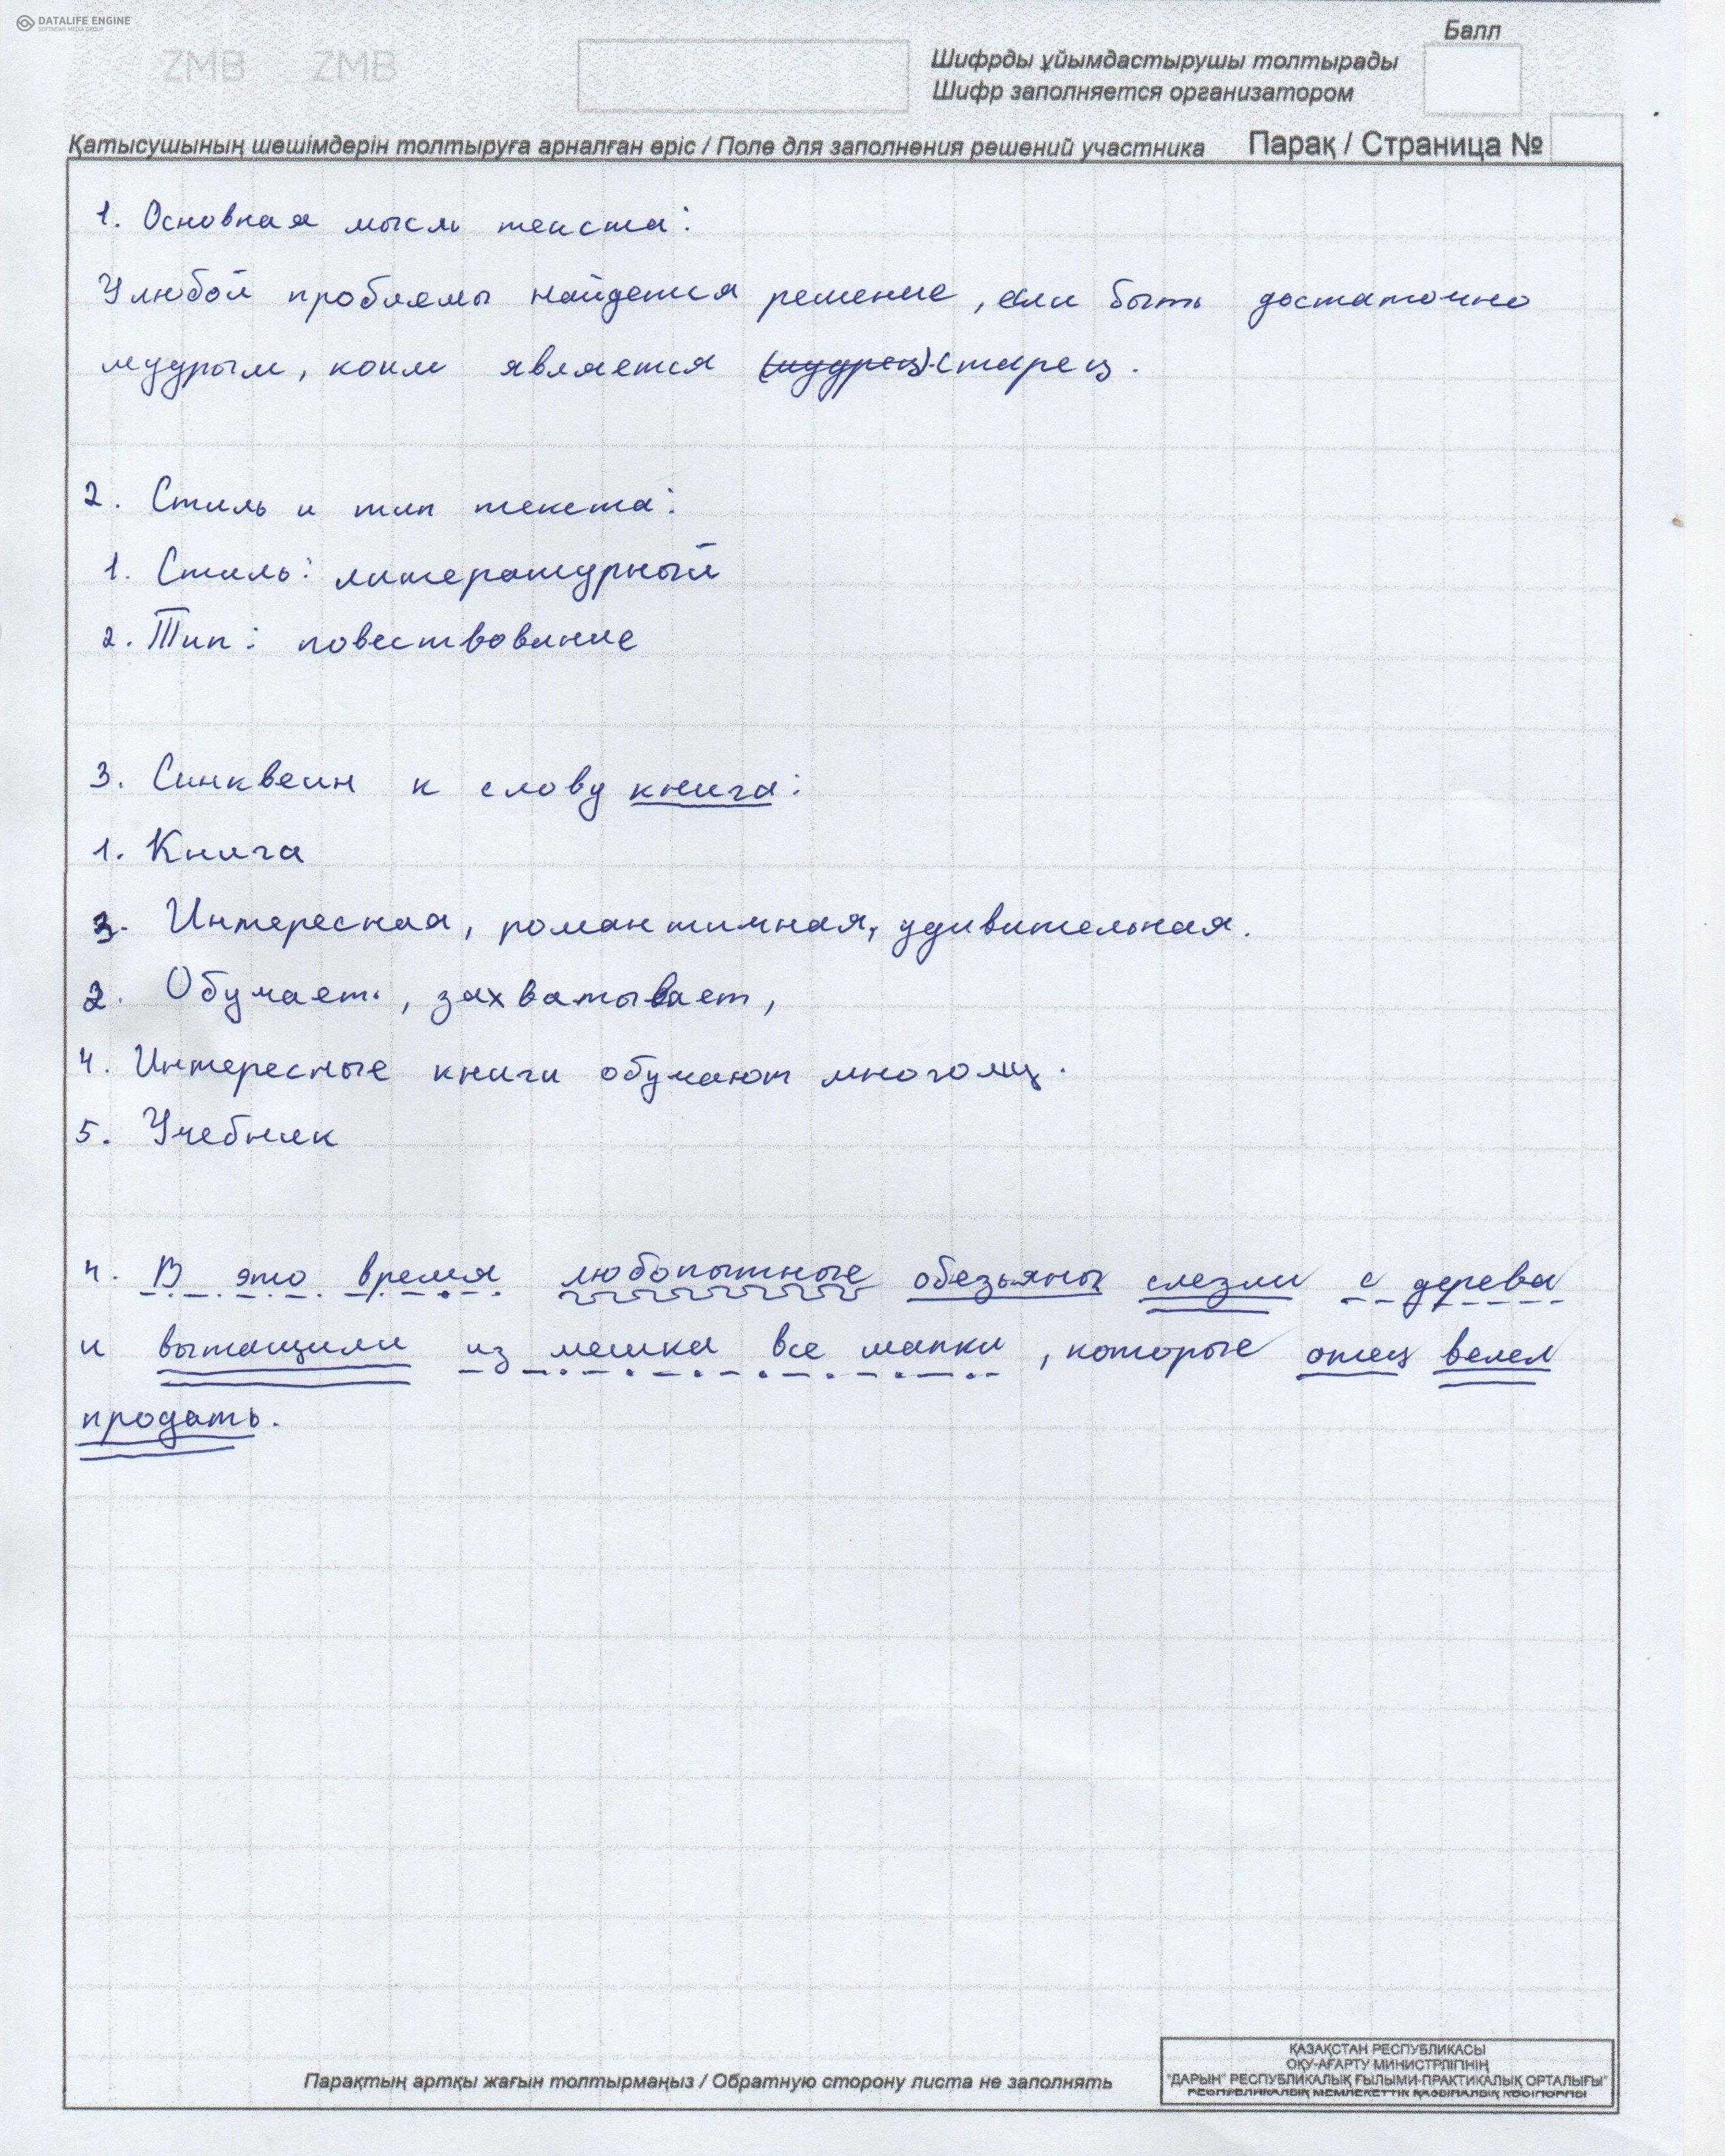 DATALIFE ENGINE
SOFTNEWS MEDIA GROUP
ZMB ZMB
Балл
Шифрды ұйымдастырушы толтырады
Шифр заполняется организатором
Қатысушының шешімдерін толтыруға арналған өріс / Поле для заполнения решений участника Парақ / Страница №
1. Основная мысль текста:
У любой проблемы найдется решение, если быть достаточно
мудрым, коим является (мудрец). старец.
2. Стиль и тип текста:
1. Стиль: литературный
2. Тип: повествование
3. Синквеин к слову книга:
1. Книга
3. Интересная, романтичная, удивительная.
2. Обучает, захватывает,
4. Интересные книги обучают многому.
5. Учебник
4. В это время любопытные обезьяны слезли с дерева
и вытащили из мешка все шапки, которые отец велел
продать.
Парақтың артқы жағын толтырмаңыз / Обратную сторону листа не заполнять
ҚАЗАҚСТАН РЕСПУБЛИКАСЫ
ОҚУ-АҒАРТУ МИНИСТРЛІГІНІҢ
"ДАРЫН" РЕСПУБЛИКАЛЫҚ ҒЫЛЫМИ-ПРАКТИКАЛЫҚ ОРТАЛЫҒЫ"
РЕСПУБЛИКАЛЫҚ МЕМЛЕКЕТТІК ҚАЗЫНАЛЫҚ КӘСІПОРНЫ